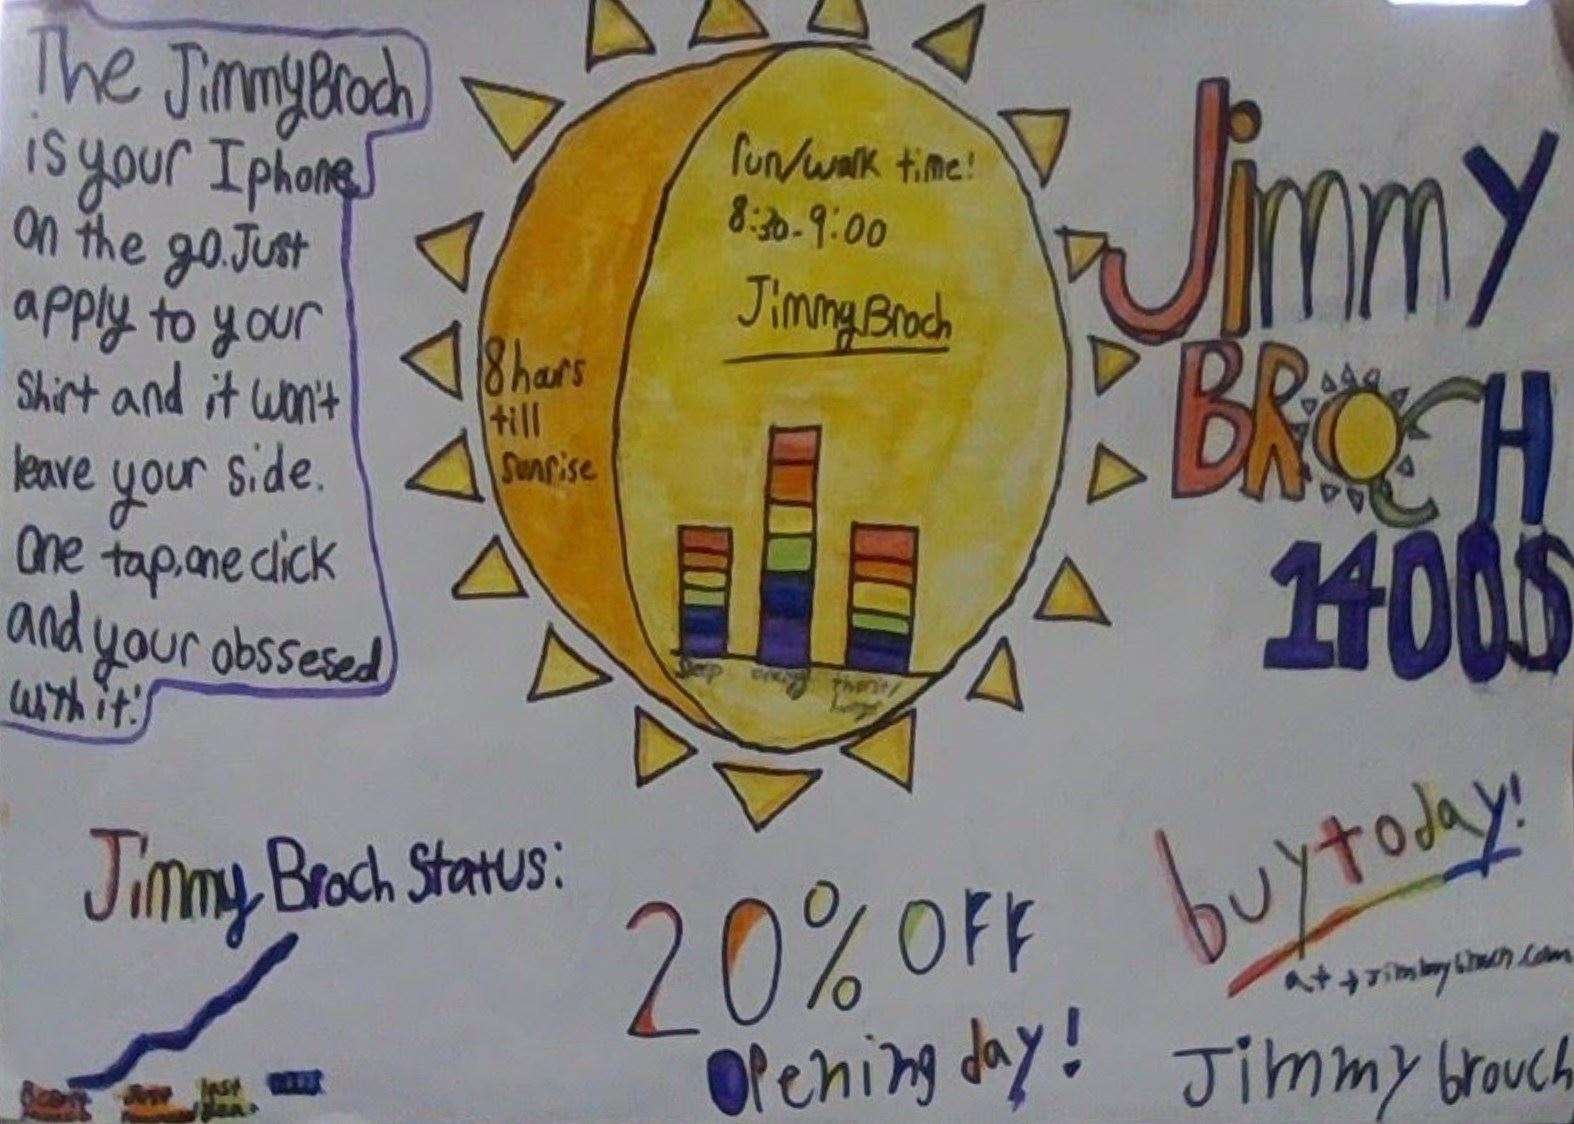 The JimmyBroch
is your Iphone
on the go. Just
apply to your
shirt and it won't
leave your side.
One tap, one click
and your obssesed
with it!
run/walk time!
8:30-9:00
JimmyBroch
8 hours
till
sunrise
sleep energy thirst/
Jimmy
BROCH
1400$
Jimmy Broch Status:
20% OFF
Opening day!
buy today!
at
Jimmy brouch